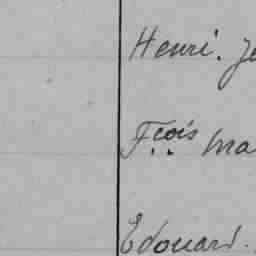 Henri. Je
Fcois ma
Edouard.